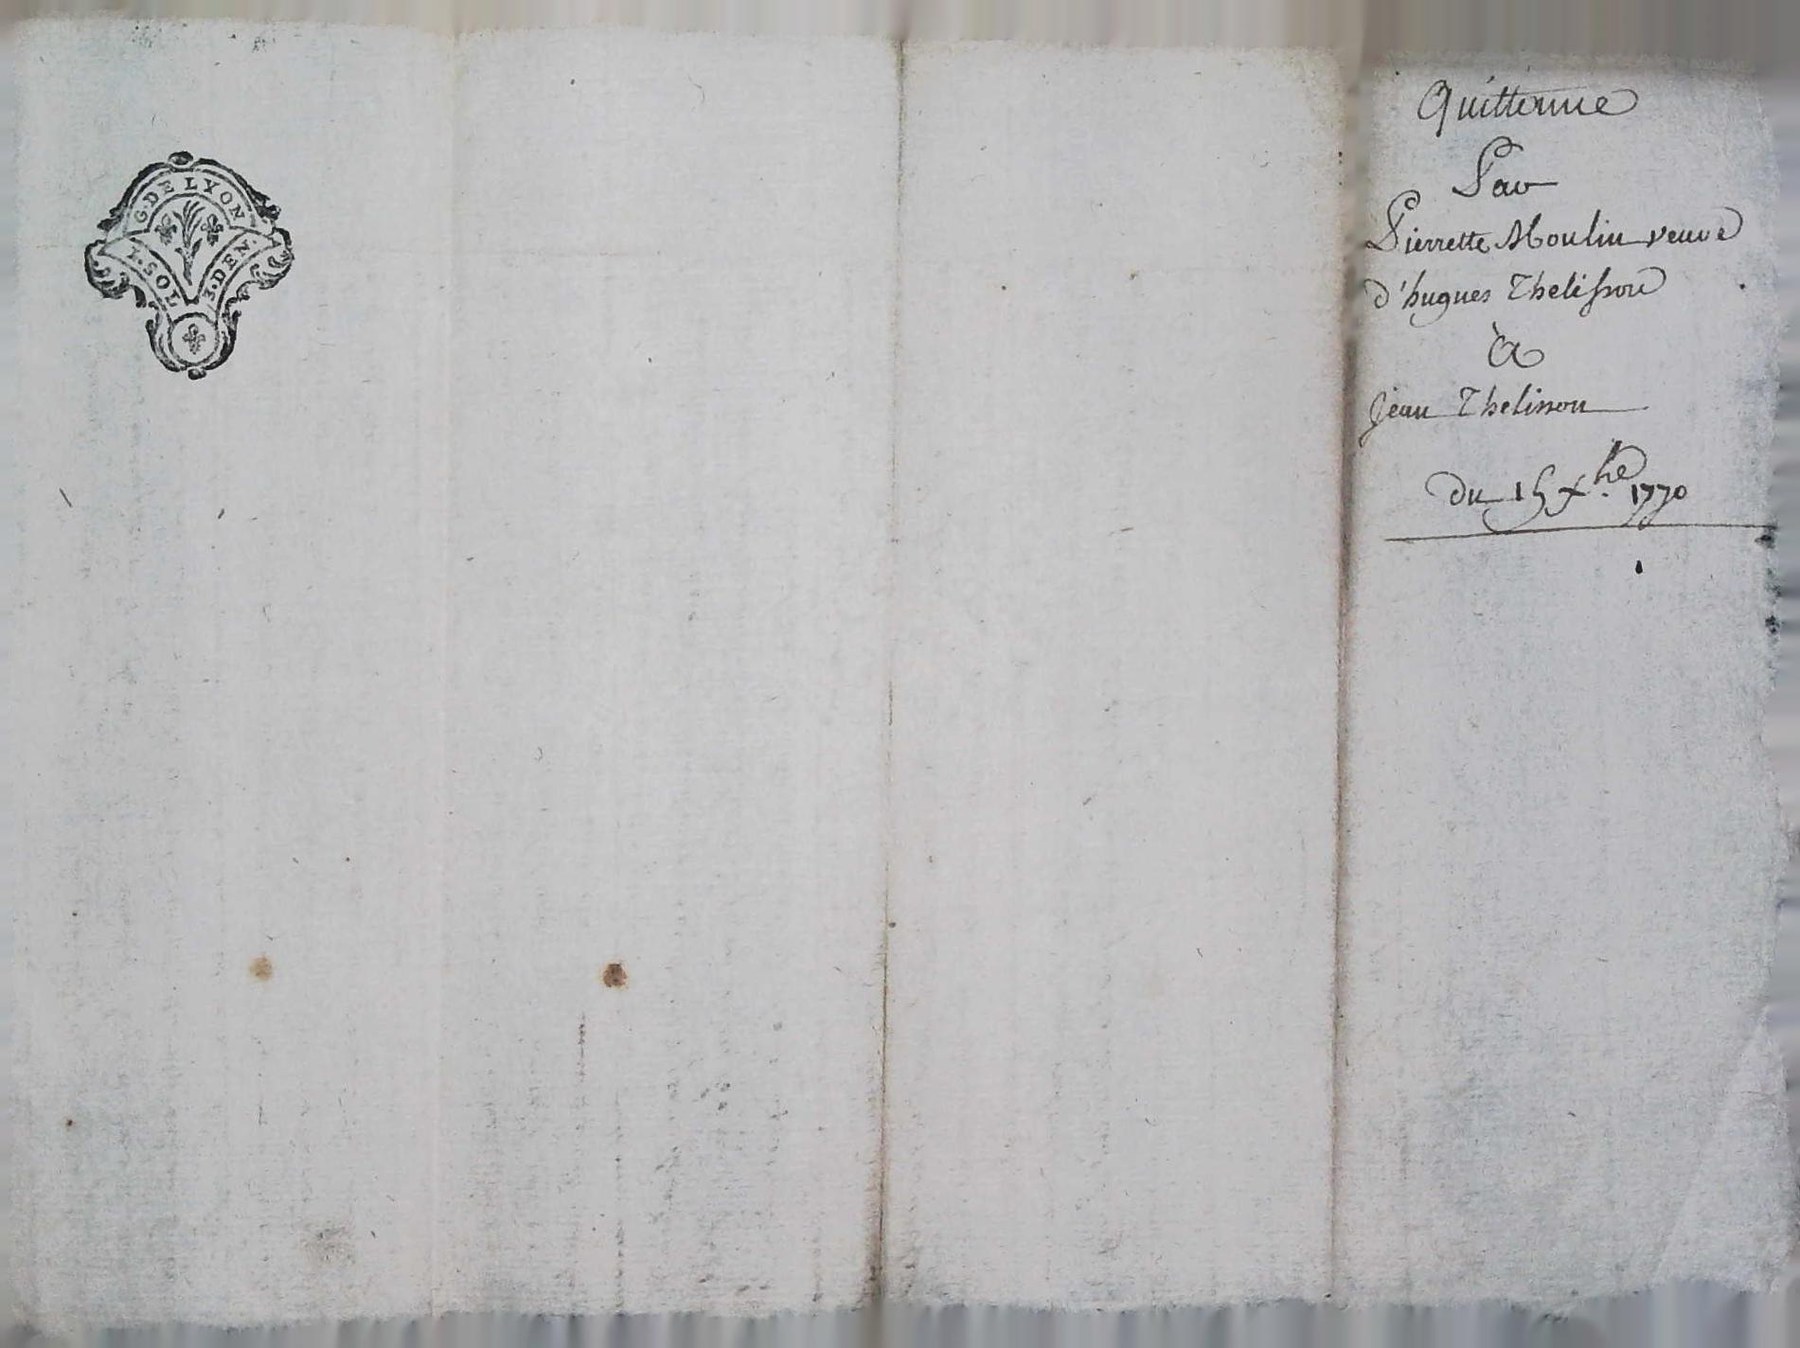 G. DE LYON
1. SOL 3. DEN.
Quittance
Par
Pierrette Moulin veuve
d'hugues Thelisson
à
Jean Thelisson
du 15 Xbre 1770